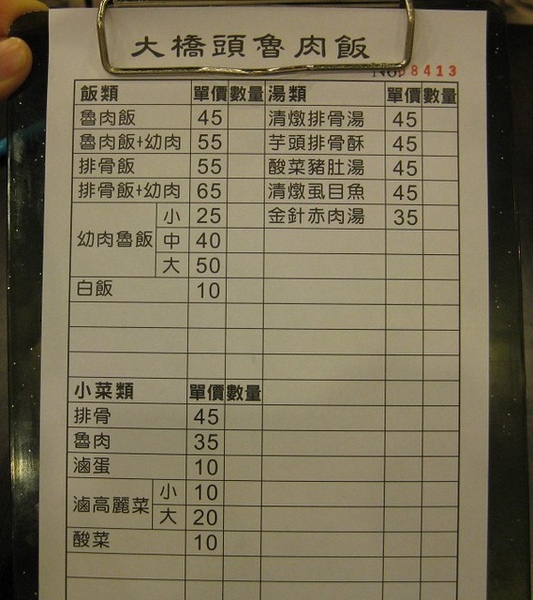 大橋頭魯肉飯
NO. 08413
飯類 單價 數量 湯類 單價 數量
魯肉飯 45 清燉排骨湯 45
魯肉飯+幼肉 55 芋頭排骨酥 45
排骨飯 55 酸菜豬肚湯 45
排骨飯+幼肉 65 清燉虱目魚 45
幼肉魯飯 小 25 金針赤肉湯 35
中 40
大 50
白飯 10
小菜類 單價 數量
排骨 45
魯肉 35
滷蛋 10
滷高麗菜 小 10
大 20
酸菜 10